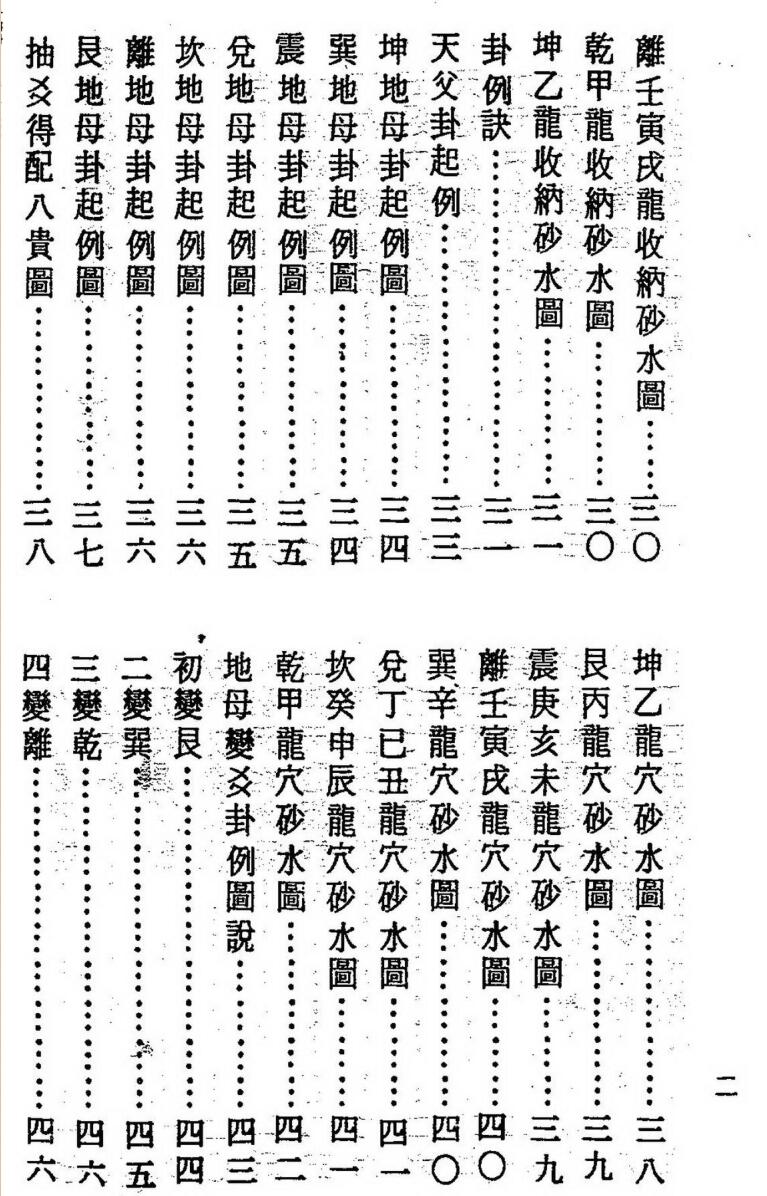 離壬寅戌龍收納砂水圖……三〇
乾甲龍收納砂水圖……三〇
坤乙龍收納砂水圖……三一
卦例訣……三一
天父卦起例……三三
坤地母卦起例圖……三四
巽地母卦起例圖……三四
震地母卦起例圖……三五
兌地母卦起例圖……三五
坎地母卦起例圖……三六
離地母卦起例圖……三六
艮地母卦起例圖……三七
抽爻得配八貴圖……三八
坤乙龍穴砂水圖……三八
艮丙龍穴砂水圖……三九
震庚亥未龍穴砂水圖……三九
離壬寅戌龍穴砂水圖……四〇
巽辛龍穴砂水圖……四〇
兌丁巳丑龍穴砂水圖……四一
坎癸申辰龍穴砂水圖……四一
乾甲龍穴砂水圖……四二
地母變爻卦例圖說……四三
初變艮……四四
二變巽……四五
三變乾……四六
四變離……四六
二